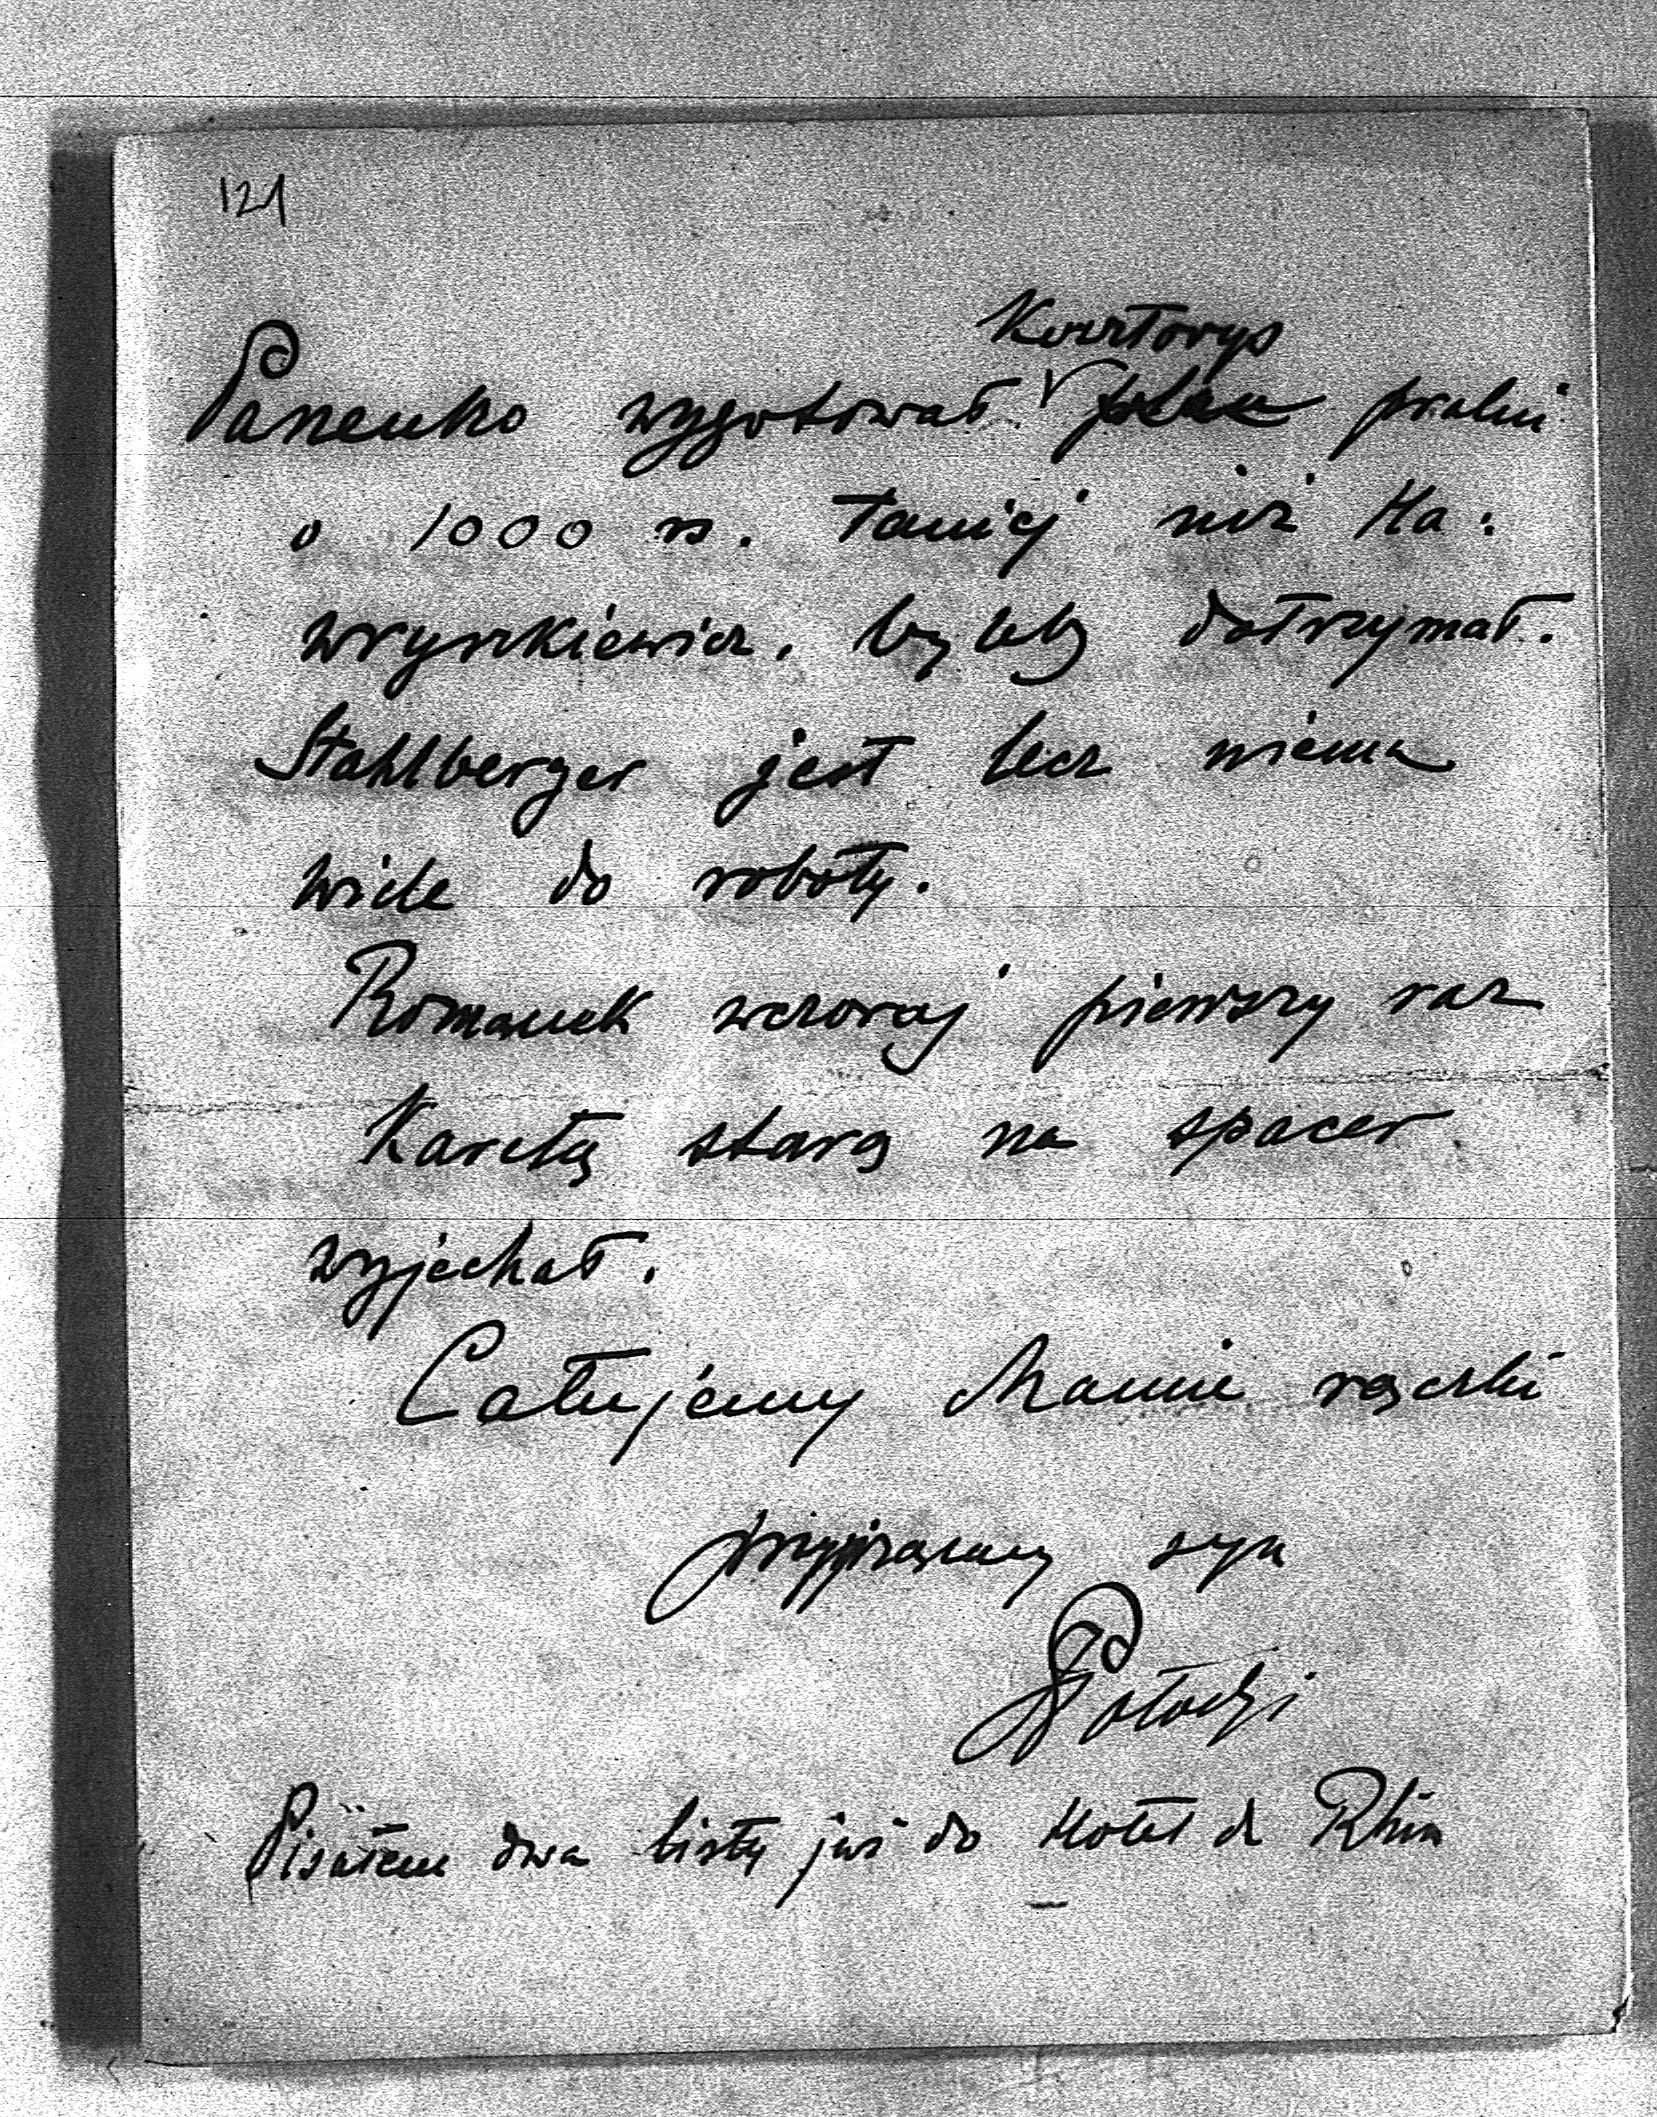 121
Kosztorys
Panenko wygotował plan pralni
o 1000 rs. taniej niż Ha:
wryszkiewicz, byleby dotrzymał.
Stahlberger jest lecz niema
wiele do roboty.
Romanek wczoraj pierwszy raz
Karetą starą na spacer
wyjechał.
Całujemy Mamie rączki
przywiązany syn
Potocki
Pisałem dwa listy już do Hotel de Rhin